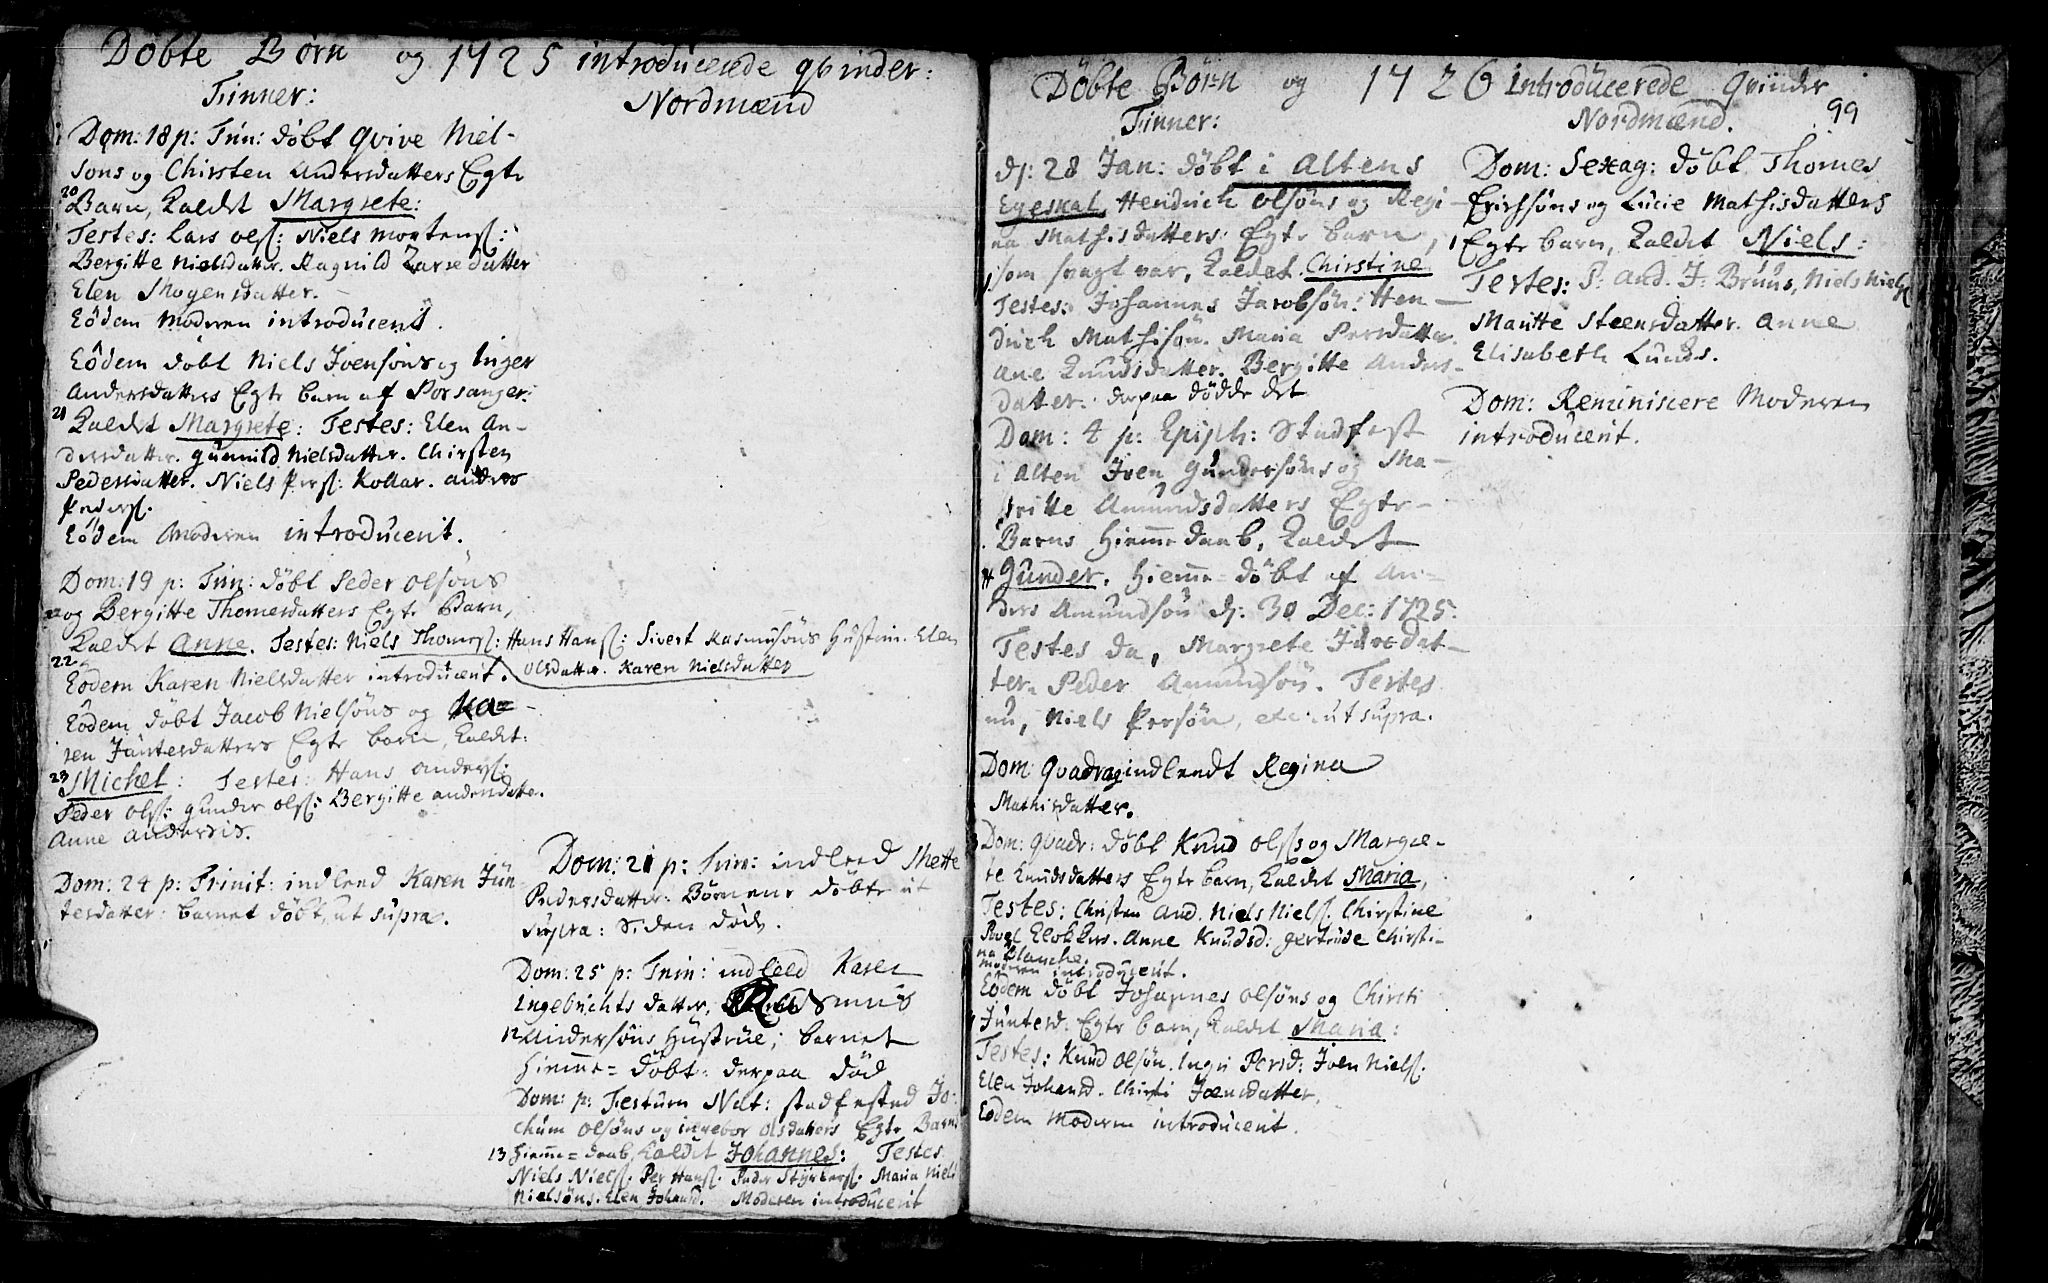 Döbte Börn og 1725 introducerede qvinder:
Finner:
Dom: 18 p: Trin: döbt Qvive Niel-
sons og Chirsten Andersdatters Egte
20 Barn, Kaldet Margrete:
Testes: Lars olſ: Niels Mortenſ:
Bergitte Nielsdatter. Ragnild Larsedatter
Elen Mogensdatter.
Eödem Moderen introducerit.
Eödem döbt Niels Joensöns og Inger
Andersdatters Egte barn af Porsanger:
21 Kaldet Margrete: Testes: Elen An-
dersdatter. Gunnild Nielsdatter. Chirsten
Pedersdatter. Niels Perſ: Kollar. Anders
Pederſ.
Eödem Moderen introducerit.
Dom: 19 p: Trin: döbt Peder olsöns
og Bergitte Thomesdatters Egte Barn,
Kaldet Anne. Testes: Niels Thomesſ: Hans Hansſ: Sivert Rasmusöns Hustrue. Elen
22 Olsdatter. Karen Nielsdatter
Eodem Karen Nielsdatter introducerit.
Eödem döbt Jacob Nielsöns og Ka=
ren Juntersdatters Egte barn, Kaldet:
23 Michel: Testes: Hans Andersſ:
Peder olsſ: Gunder olsſ: Bergitte Andersdatter.
Anne Andersis.
Dom: 24 p: Trinit: indleed Karen Jün-
tersdatter: barnet döbt, ut supra.
Nordmænd
Dom: 21 p: Trin: indleed Mette
Pedersdatter. Börnene döbte ut
supra: siden död.
Dom: 25 p: Trin: indleed Karen
Ingebrichts datter, Rasmus
12 Andersöns Hustrue; barnet
hiemme= döbt: derpaa död
Dom: p: Festum Nat: stadfested Jo-
chum olsöns og ingebor olsdatters Egte Barns
13 hiemme=daab, Kaldet Johannes: Testes
Niels Nielsſ. Per Hansſ. Peder Styrkersſ. Maria Niels
Nielsöns. Elen Johansd. Moderen introducerit
Döbte Börn og 1726 Introducerede Qvinder
99
Finner:
d: 28 Jan: döbt i Altens
Egeskal, Hendrich olsöns og Regi-
na Mathisdatters Egte barn,
1 som svagt var, Kaldet Chirstine
Testes: Johannes Jacobsön: Hen-
drich Mathisön. Maria Persdatter.
Ane Knudsdatter. Bergitte Anders-
datter. derpaa dödde det
Dom: 4 p: Epiph: Stadfest
i Alten Joen Gundersöns og Ma-
britte Amundsdatters Egte-
Barns hiemme daab, Kaldet
Gunder. Hiemme= döbt af An=
ders Amundsön d: 30 Dec: 1725:
Testes da, Margrete Juredat-
ter. Peder Amundsön. Testes
nu, Niels Persön, etc: ut supra.
Dom: Quadrag indleedt Regina
Mathisdatter.
Dom: Quadr: döbt Knud olsſ og Margre-
te Knudsdatters Egte barn, Kaldet Maria,
Testes: Christen And. Niels Nielsſ. Chirstine
Povel Klokkers. Anne Knudsd: gertrude Chirsti-
na Blanche.
Moderen introducerit.
Eödem döbt Johannes olsöns og Chirsti
Juntersd. Egte barn, Kaldet Maria:
Testes: Knud olsön. Inger Persd: Joen Nielsſ.
Elen Johansd. Chirsti Joensdatter.
Eodem Moderen introducerit.
Nordmænd.
Dom: Sexag: döbt Thomes
Erichsöns og Lucie Mathisdatters
1 Egte barn, Kaldet Niels:
Testes: P: And. J: Bruns, Niels Nielsſ
Maritte Steensdatter. Anne
Elisabeth Lunds.
Dom: Reminiscere Moderen
introducerit.